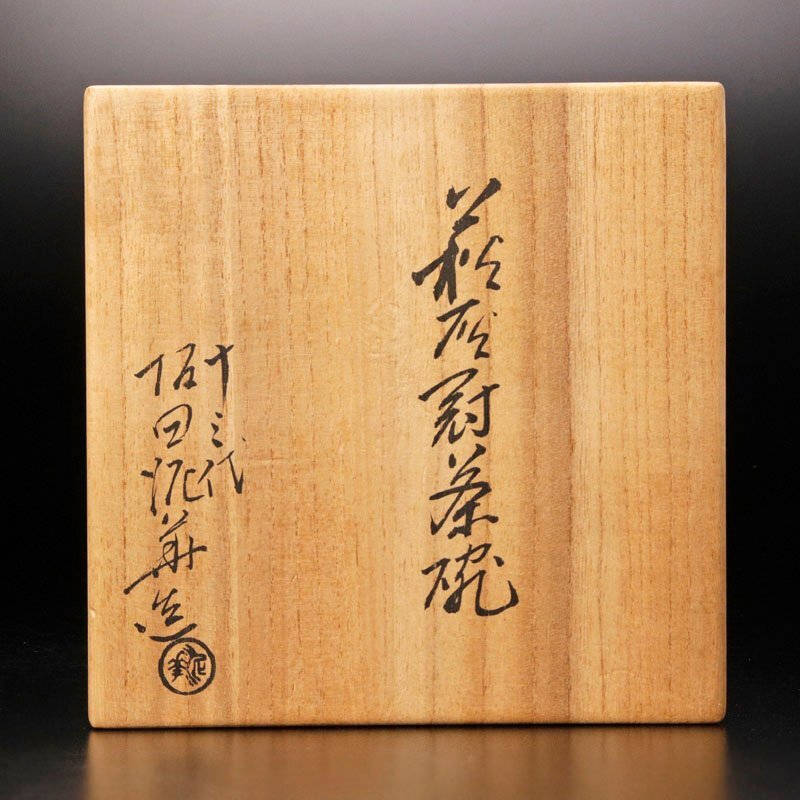 萩灰冠茶碗
十三代
坂田泥華造
泥華